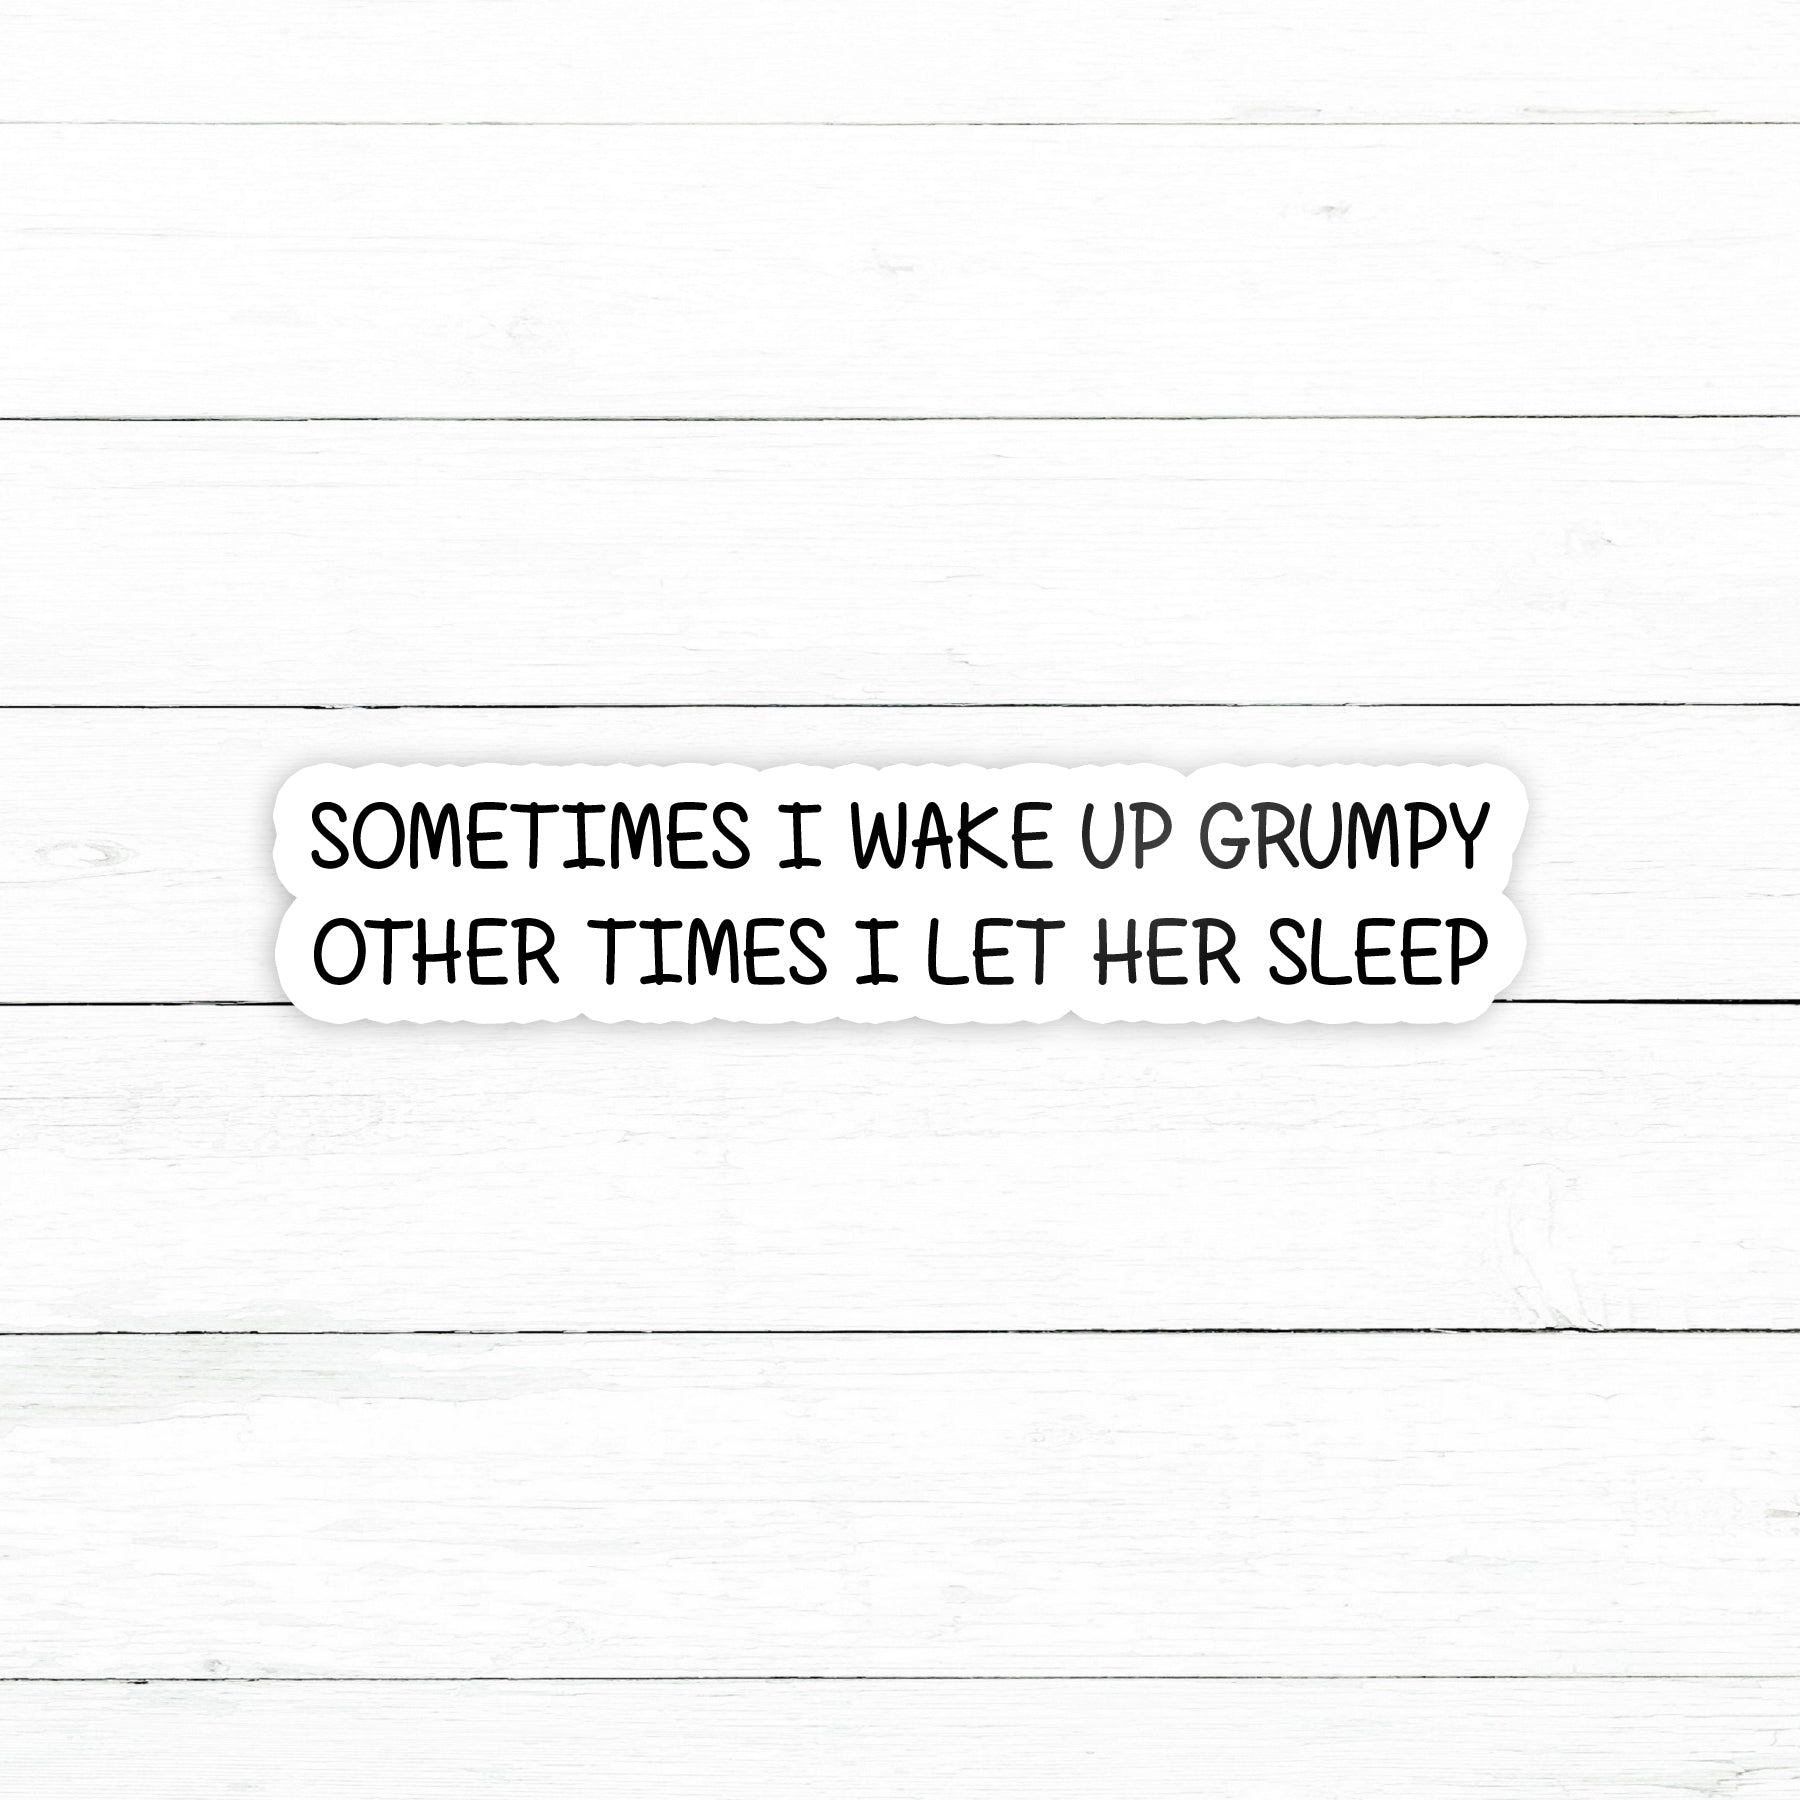 SOMETIMES I WAKE UP GRUMPY
OTHER TIMES I LET HER SLEEP